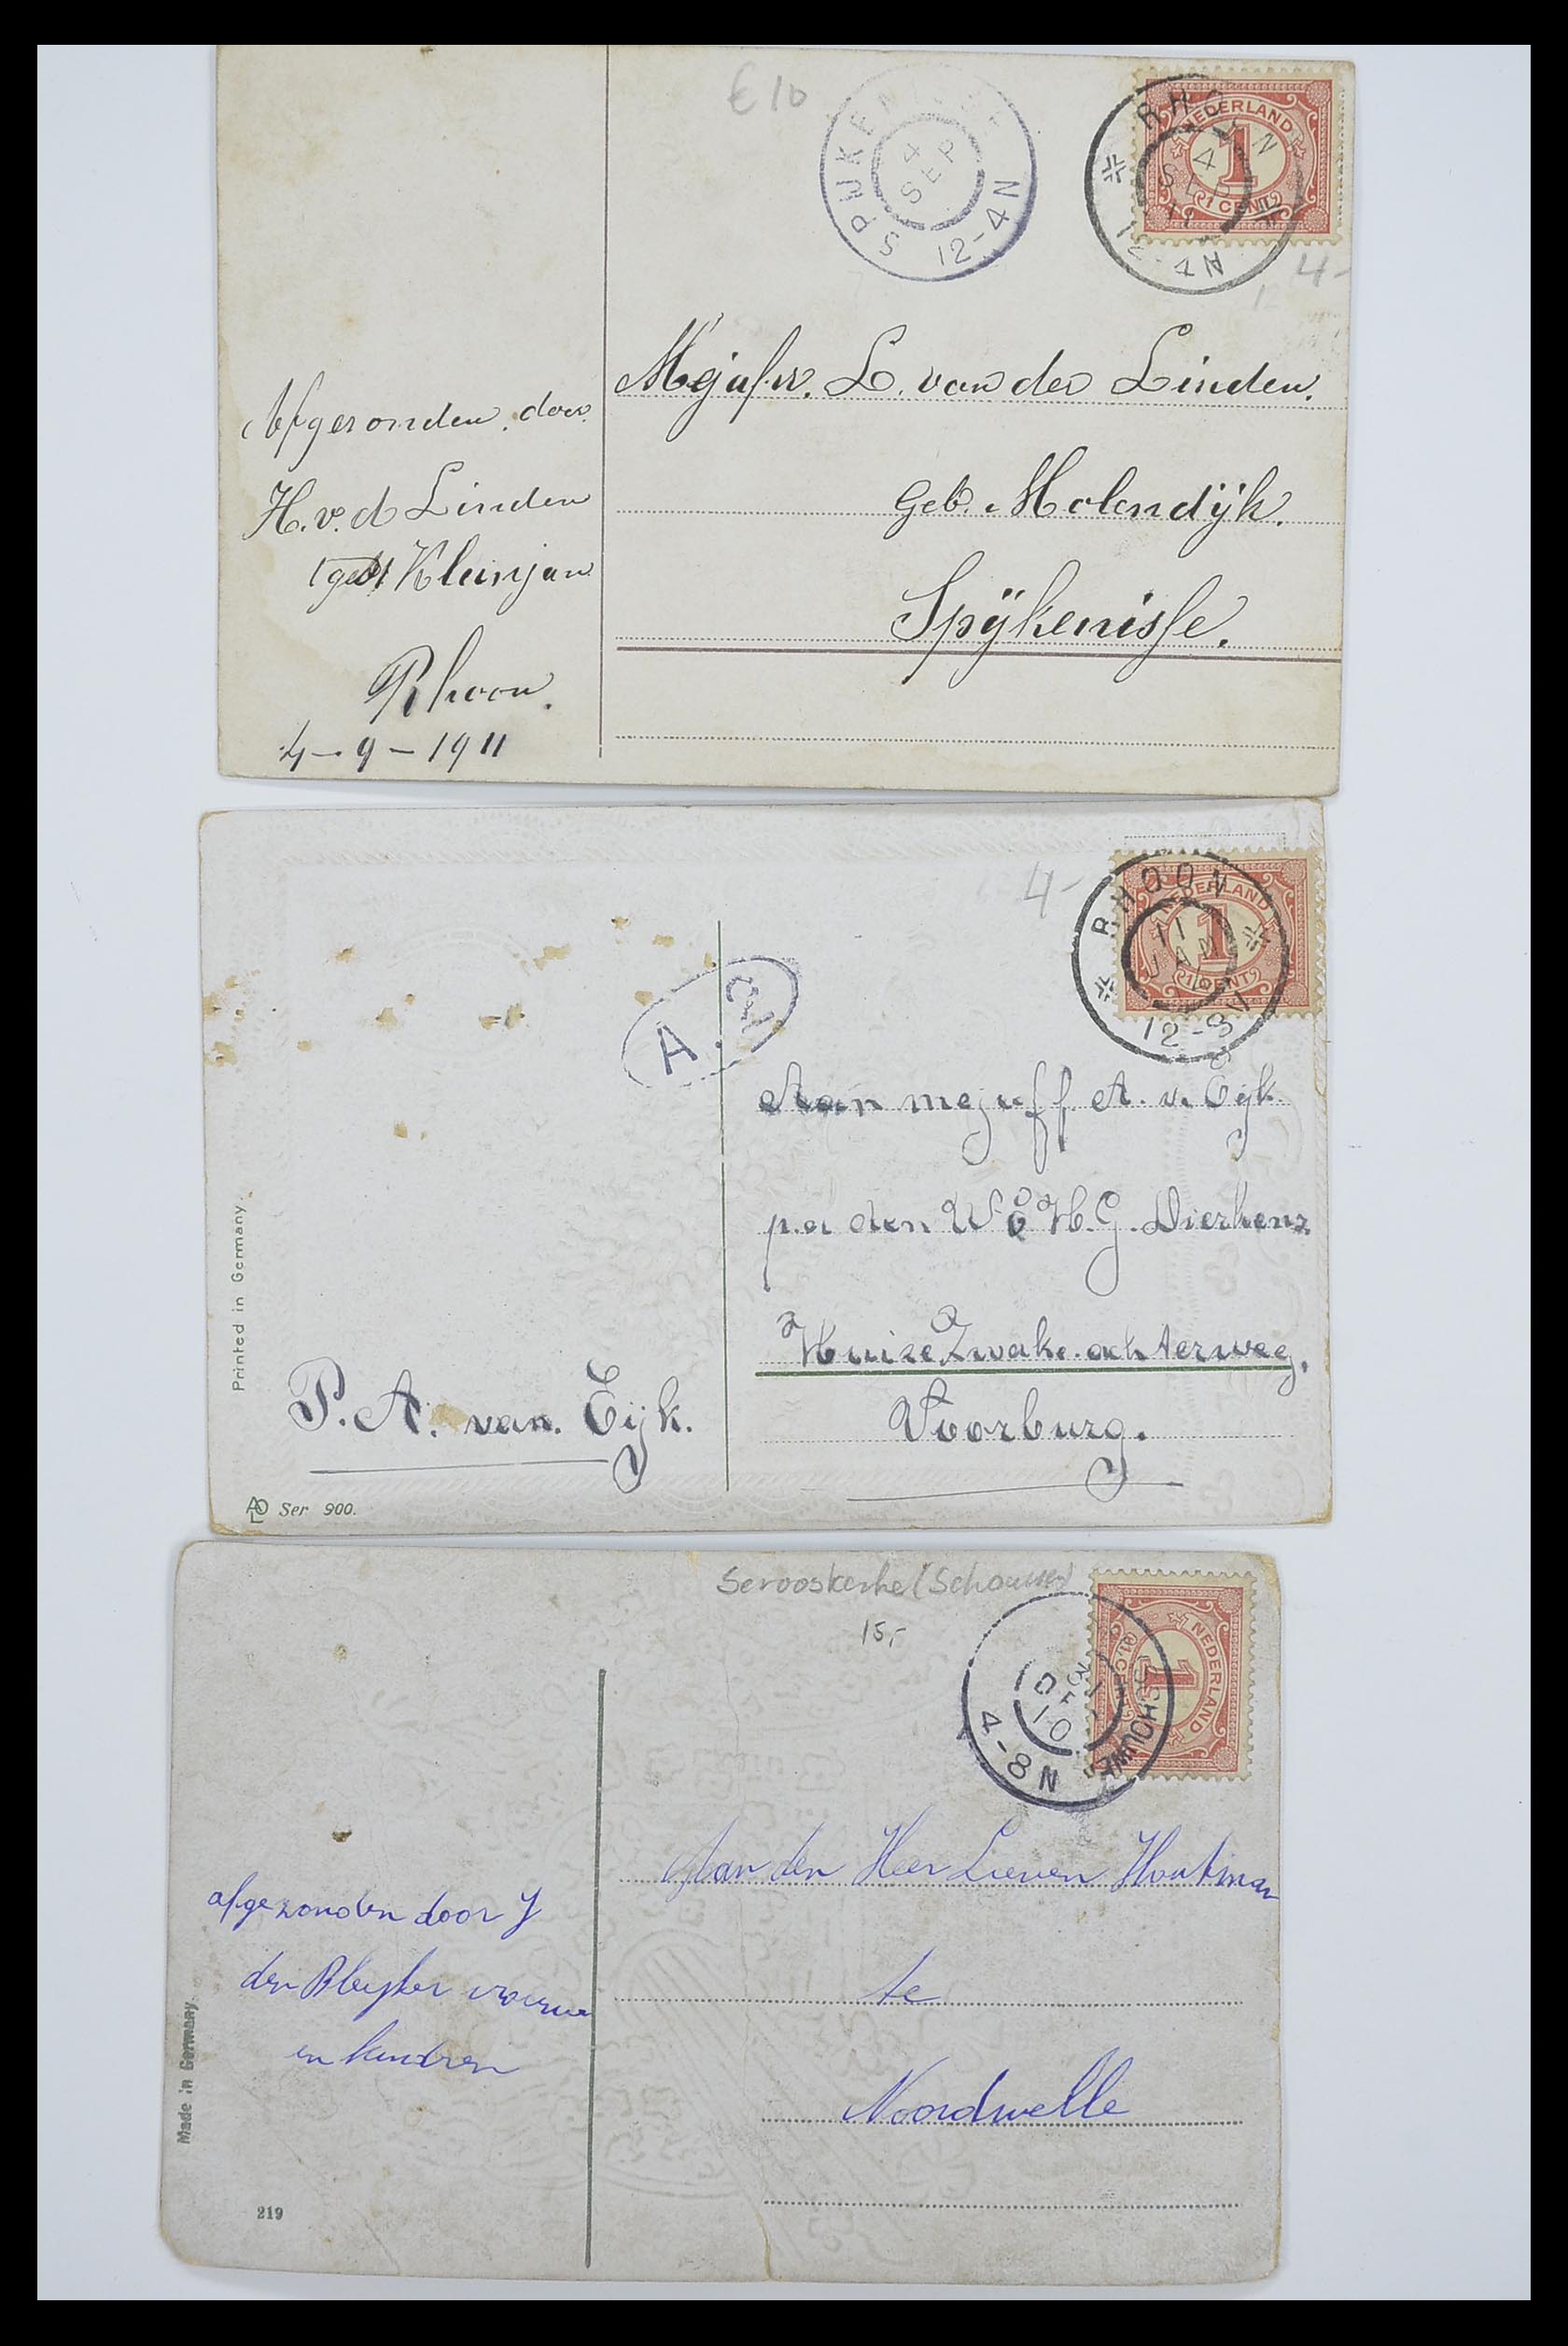 €10
SPIJKENISSE
4
SEP
12-4N
RHOON
4
SEP
11
12-4N
NEDERLAND
1
1 CENT
4-
Mejufvr. L. van der Linden.
Geb. Molendijk.
Spijkenisse.
Afgezonden door
H. v. d Linden
geb Kleinjan
Rhoon.
4-9-1911
4-
RHOON
11
JAN
12-8N
NEDERLAND
1
1 CENT
A.
Aan mejuff A. v. Eyk
p.a den W E H. G. Dierkens
Huize Zwake. achterweg.
Voorburg.
P. A. van. Eijk.
Printed in Germany.
Ser 900.
Serooskerke (Schouwen)
15,-
31
DEC
10
4-8N
SCHOUWEN
NEDERLAND
1
1 CENT
Aan den Heer Lieven Houtman
te
Noordwelle
afgezonden door J
den Bleyker vrouw
en kindren
Made in Germany.
219